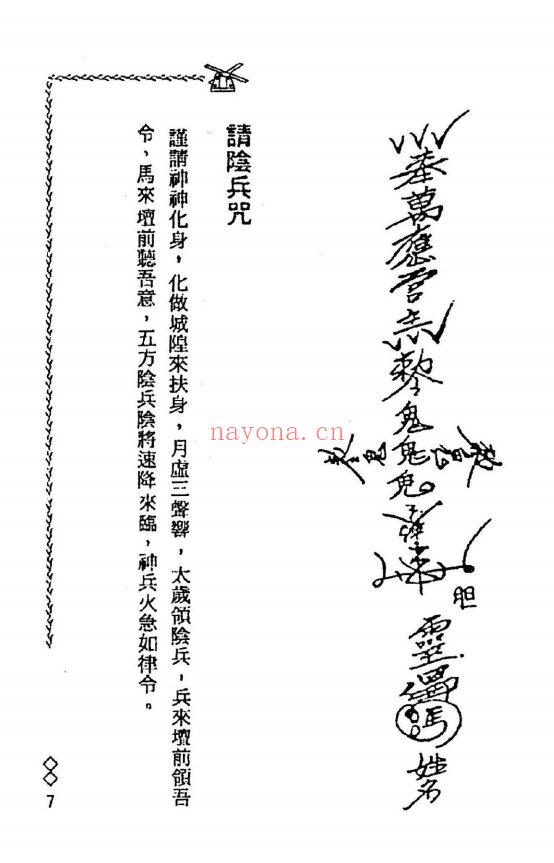 奉萬應宮
勅令鬼鬼鬼
胆
靈
姓名
請陰兵咒
謹請神神化身,化做城隍來扶身,月虛三聲響,太歲領陰兵,兵來壇前領吾
令,馬來壇前聽吾意,五方陰兵陰將速降來臨,神兵火急如律令。
7
nayona.cn